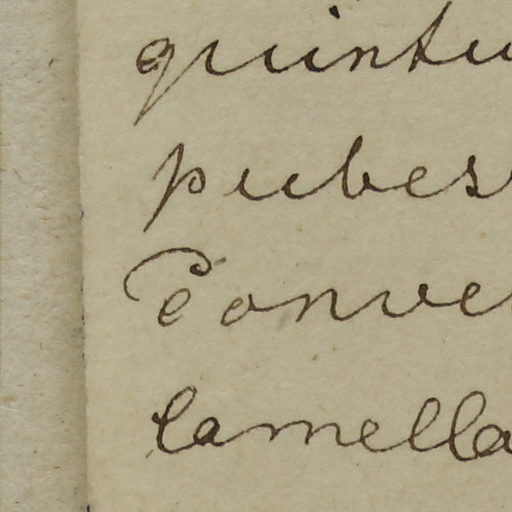 quintu
pubes
Conve
lamella